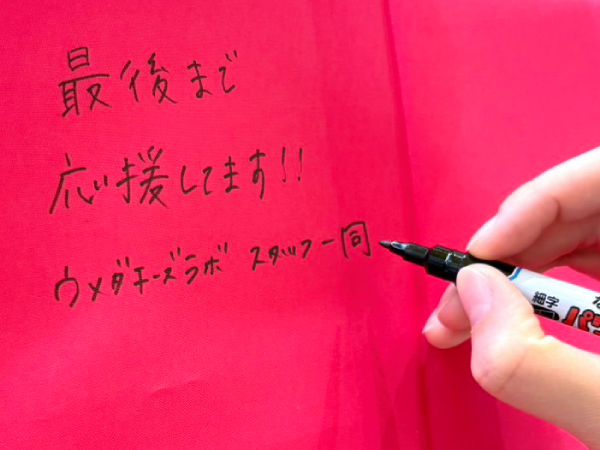 最後まで
応援してます!!
ウメダキーズラボ スタッフ一同
細字